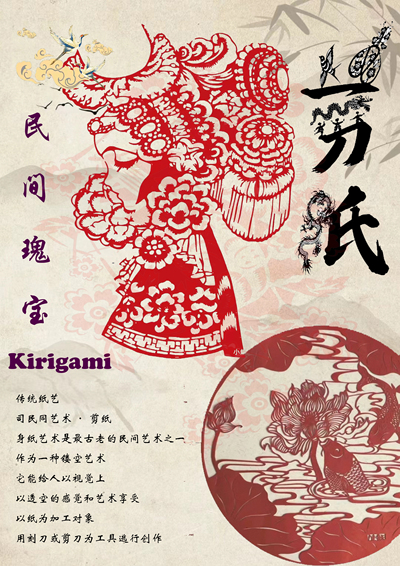 剪纸
民间瑰宝
Kirigami
传统纸艺
司民间艺术·剪纸
身纸艺术是最古老的民间艺术之一
作为一种镂空艺术
它能给人以视觉上
以透空的感觉和艺术享受
以纸为加工对象
用刻刀或剪刀为工具进行创作